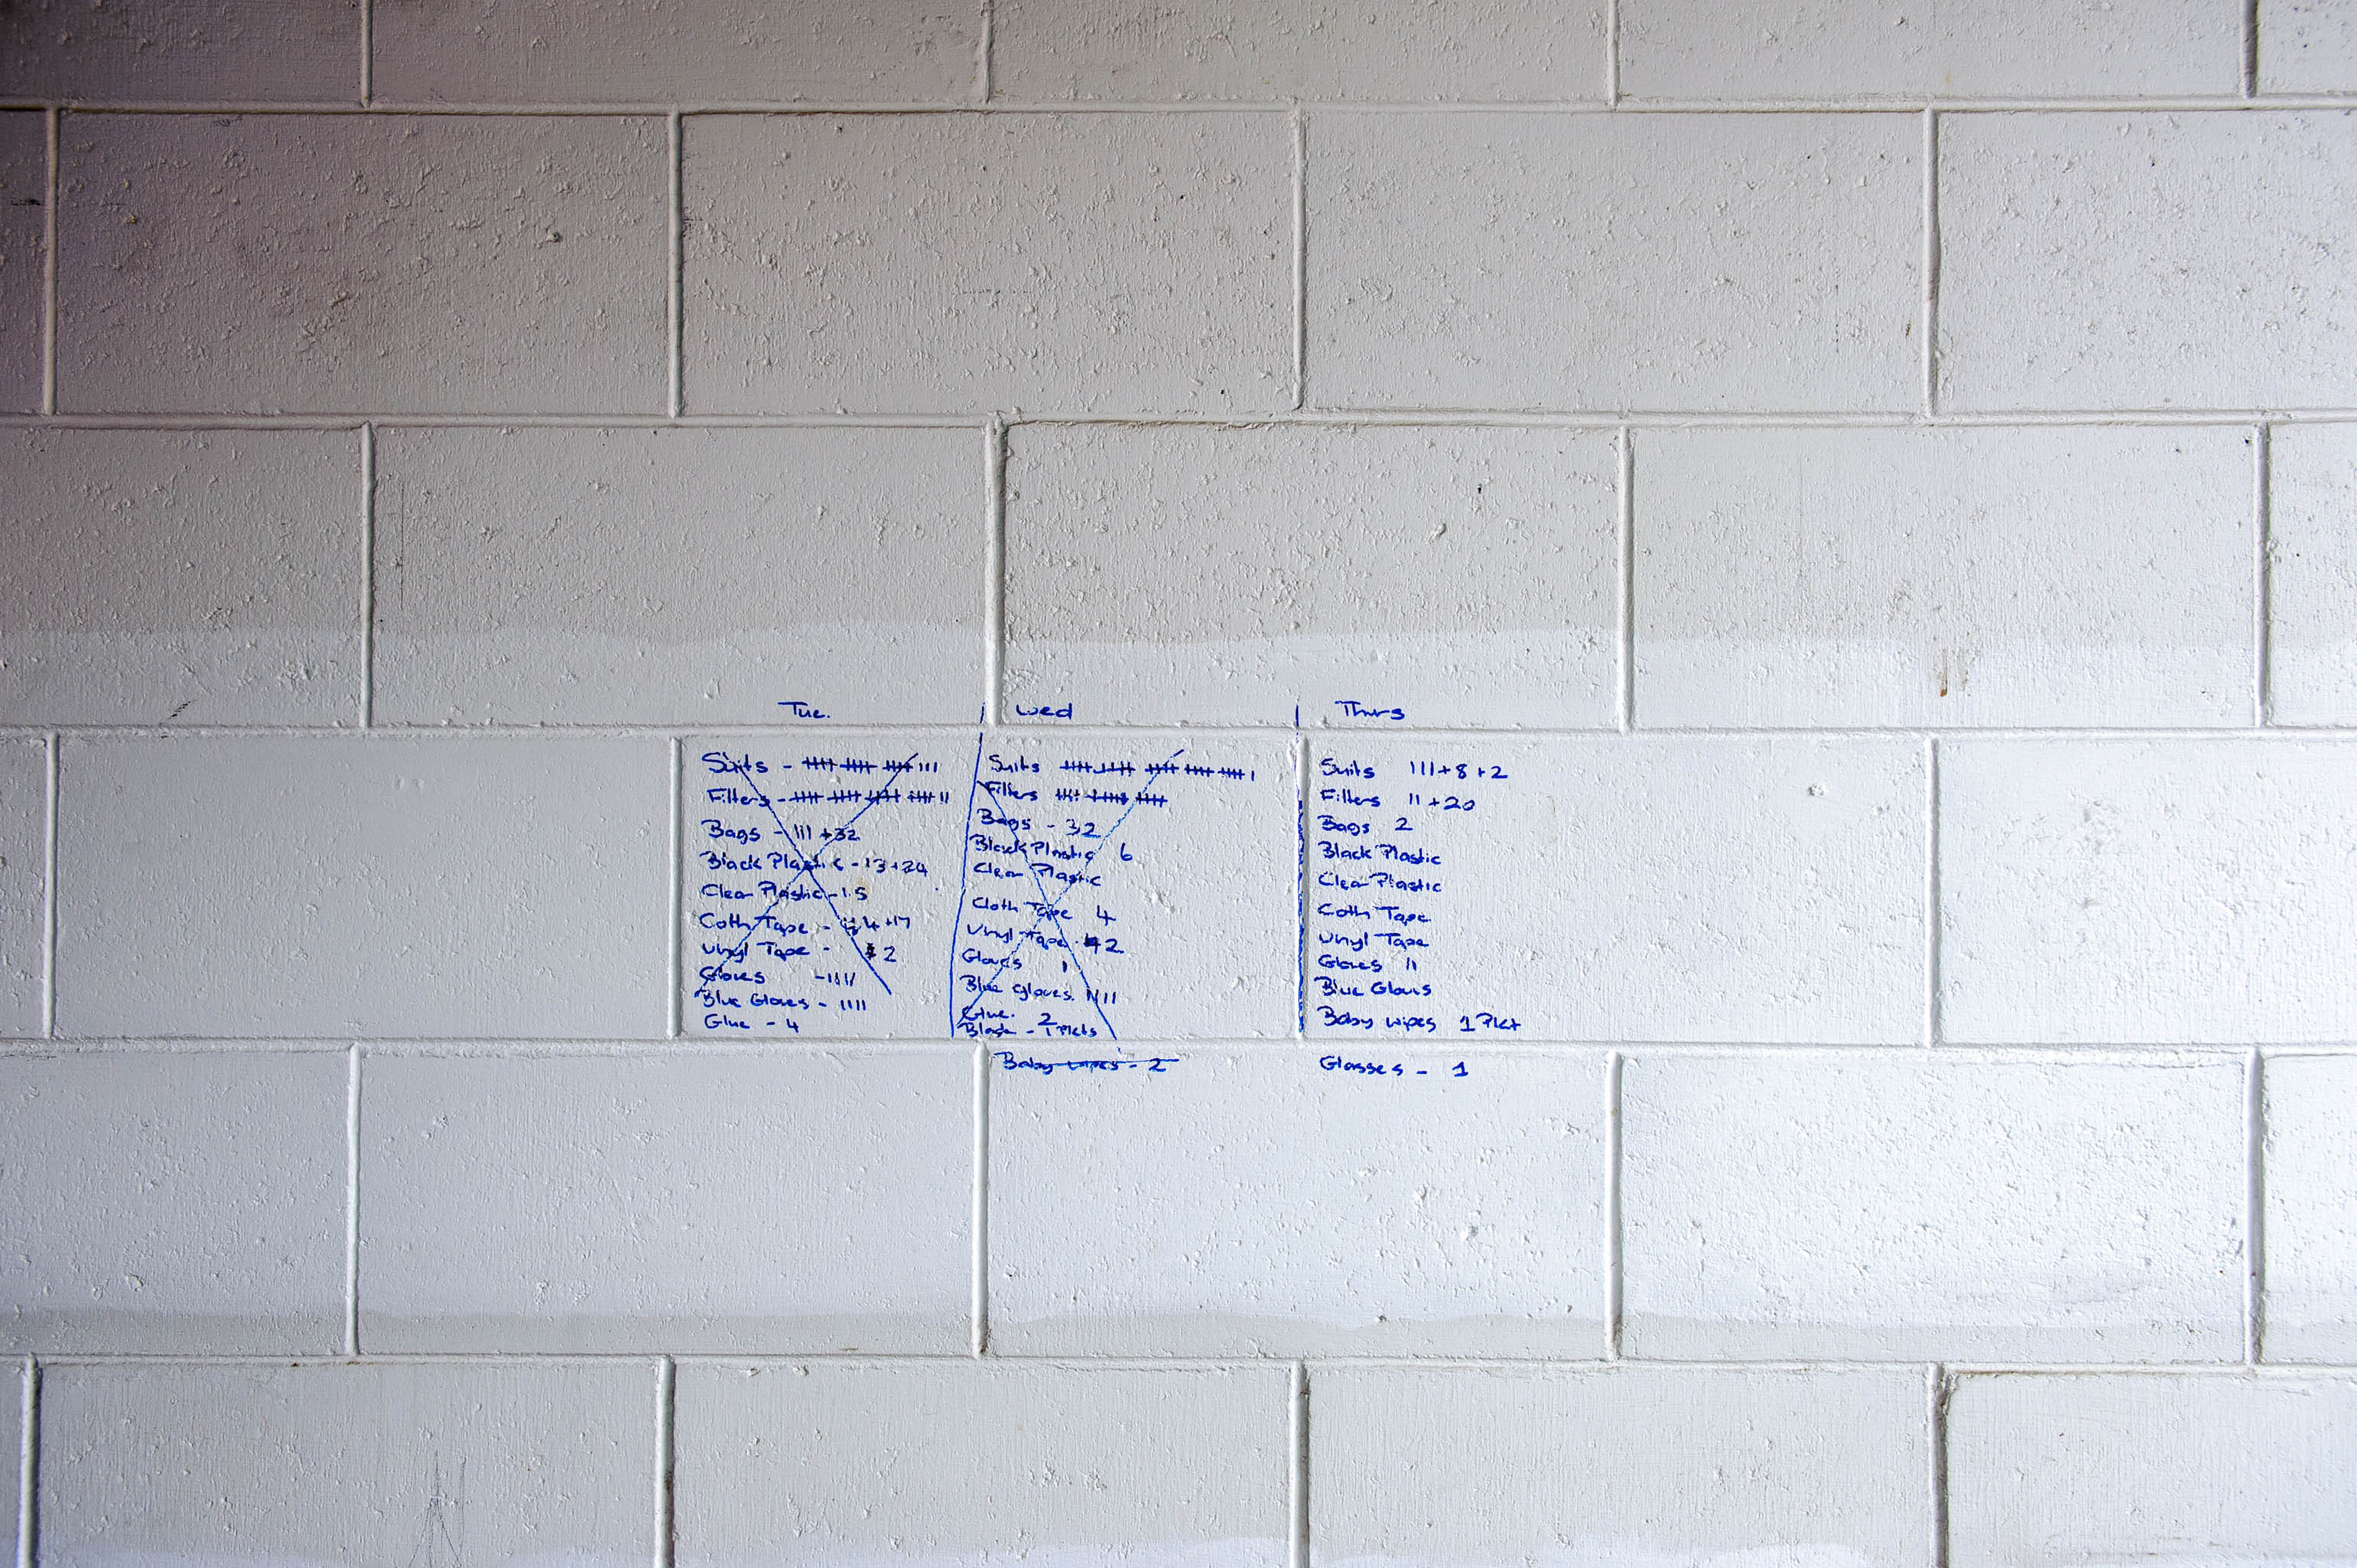 Tue.
Suits - 卌 卌 卌 III
Filters - 卌 卌 卌 卌 II
Bags - III + 32
Black Plastic - 13 + 24
Clear Plastic - 1.5
Coth Tape - 4 + 17
Vinyl Tape - 2
Gloves - IIII
Blue Gloves - IIII
Glue - 4
Wed
Suits 卌 卌 卌 卌 卌 I
Filters 卌 卌 卌
Bags - 32
Black Plastic 6
Clear Plastic
Cloth Tape 4
Vinyl Tape - 2
Gloves I
Blue Gloves IIII
Glue. 2
- 1 Pkts
Baby wipes - 2
Thurs
Suits III + 8 + 2
Filters II + 20
Bags 2
Black Plastic
Clear Plastic
Coth Tape
Vinyl Tape
Gloves II
Blue Gloves
Baby wipes 1 Pkt
Glasses - 1